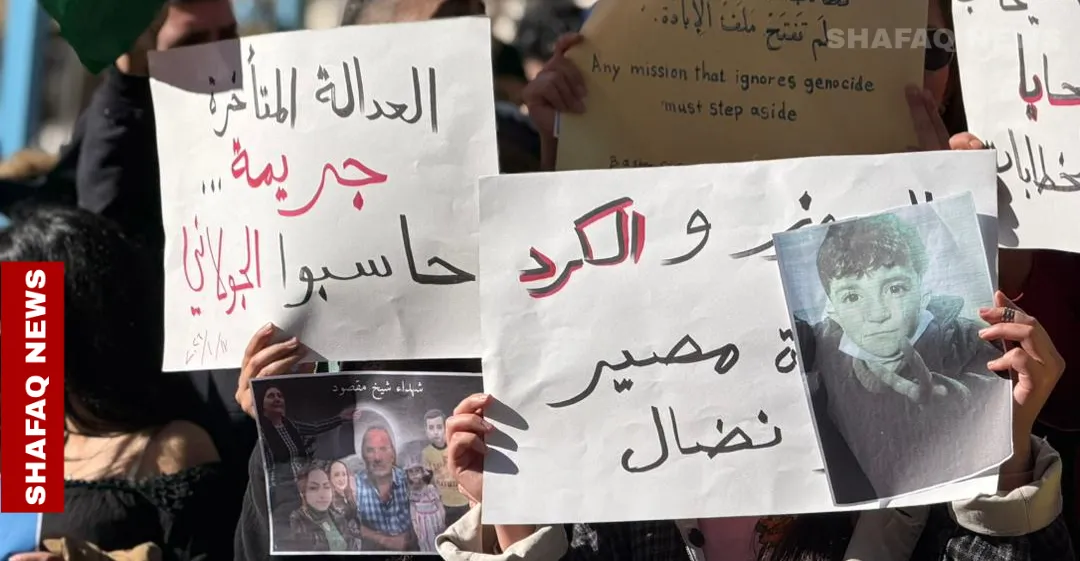 العدالة المتأخرة
جريمة...
حاسبوا الجولاني
لم تفتح ملف الإبادة.
Any mission that ignores genocide
must step aside
و الكرد
مصير
نضال
شهداء شيخ مقصود
SHAFAQ NEWS
SHAFAQ NEWS